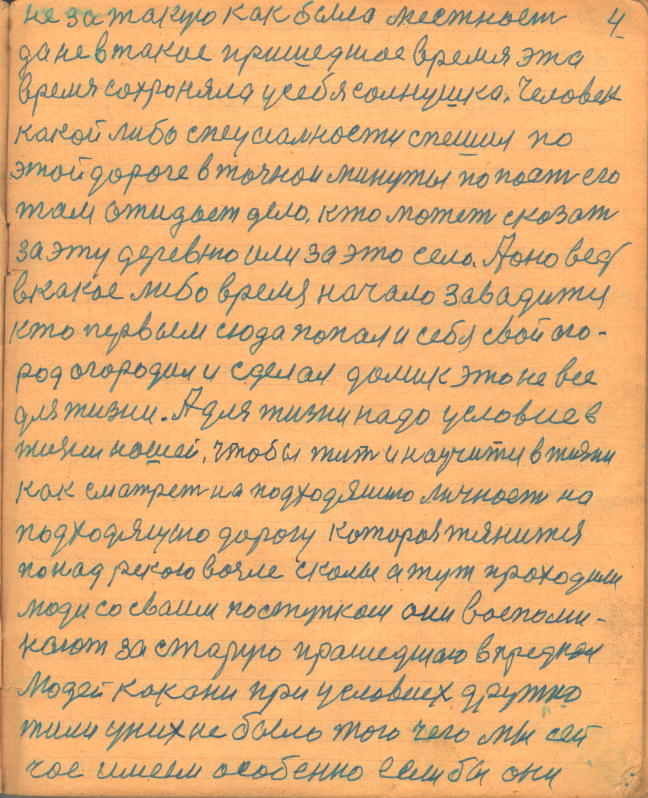 не за такую как была местност 4
да не в такое пришедшое время эта
время сохроняла у себя солнушка. Человек
какой либо специалности спешил по
этой дороге в точнои минуты по поет его
там ожидает дело, кто может сказат
за эту деревню или за это село. А оно вед
в какое либо время начало завадится
кто первым сюда попал и себя свой ого-
род огородил и сделал домик это не все
для жизни. А для жизни надо условие в
жизни нашей, чтобы жит и научится в жизни
как сматрет на подходяшию личност на
подходящую дорогу которая тянится
понад рекою возле скалы а тут проходили
люди со сваим поступком они воспоми-
нают за старую прашедшаю в предков
Людей как они при условиех дружно
жили у них не было того чего мы сей
час имеем особенно если бы они